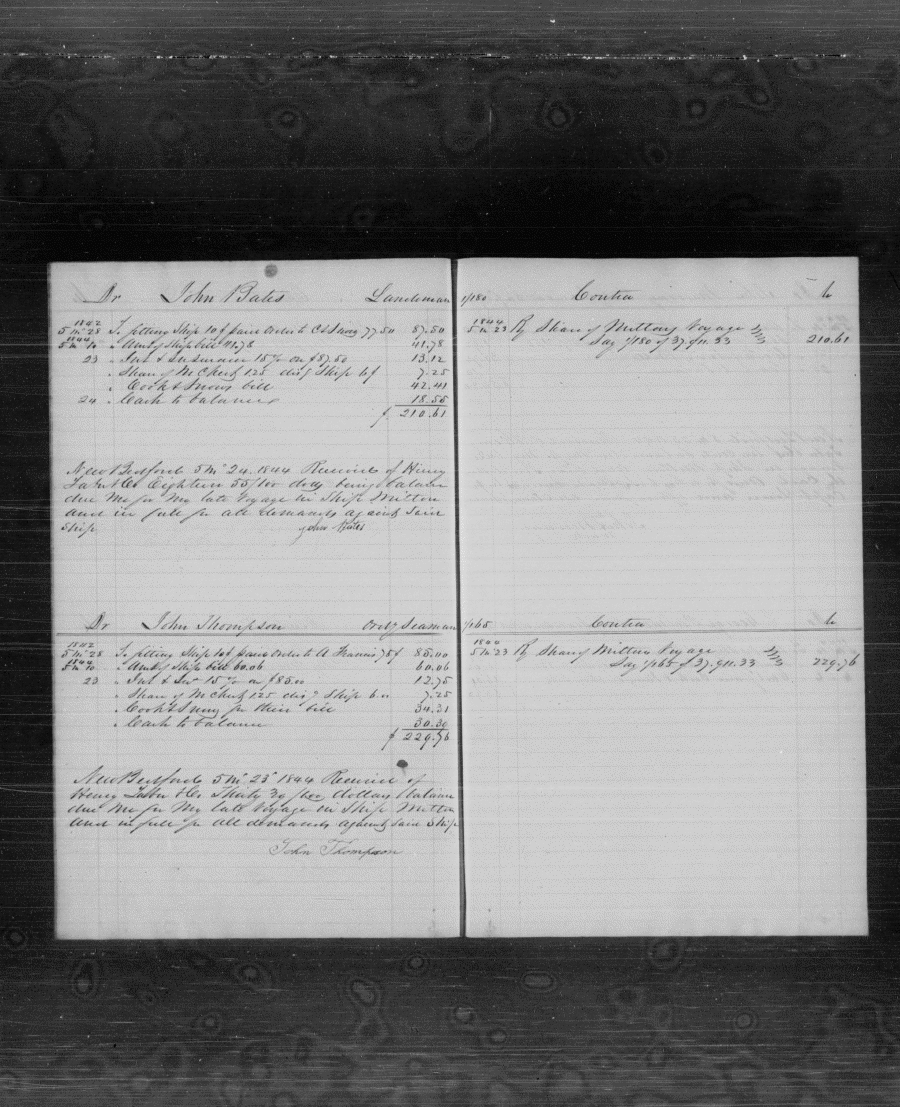 Dr John Bates Landsman 1/180 Contra Cr
1842
5 mo 28 To fitting Ship 10$ paid Order to C & Snow 77.50 87.50
1844
5 mo 10 " Amt of Ship bill 41.78 41.78
23 " Int & Insurance 15% on $87.50 13.12
" Share of M Chest 1.25 disg Ship 6$ 7.25
" Cook & Snows bill 42.41
24 " Cash to balance 18.55
$ 210.61
1844
5 mo 23 By Share of Miltons Voyage
Say 1/180 of 37.911.33 210.61
New Bedford 5 mo 24. 1844 Received of Henry
Taber & Co Eighteen 55/100 dolls being balance
due Me for My late Voyage in Ship Milton
and in full for all demands against Said
Ship
John Bates
Dr John Thompson Ordy Seaman 1/165 Contra Cr
1842
5 mo 28 To fitting Ship 10$ paid Order to A Francis 75$ 85.00
1844
5 mo 10 " Amt of Ship bill 60.06 60.06
23 " Int & Ins 15% on $85.00 12.75
" Share of M Chest 1.25 disg Ship 6.00 7.25
" Cook & Snow for their bill 34.31
" Cash to balance 30.39
$ 229.76
1844
5 mo 23 By Share of Miltons Voyage
Say 1/165 of 37.911.33 229.76
New Bedford 5 mo 23 1844 Received of
Henry Taber & Co Thirty 39/100 dollars balance
due Me for My late Voyage in Ship Milton
and in full for all demands against Said Ship
John Thompson